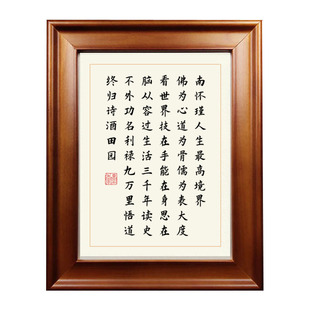 南怀瑾人生最高境界
佛为心道为骨儒为表大度
看世界技在手能在身思在
脑从容过生活三千年读史
不外功名利禄九万里悟道
终归诗酒田园